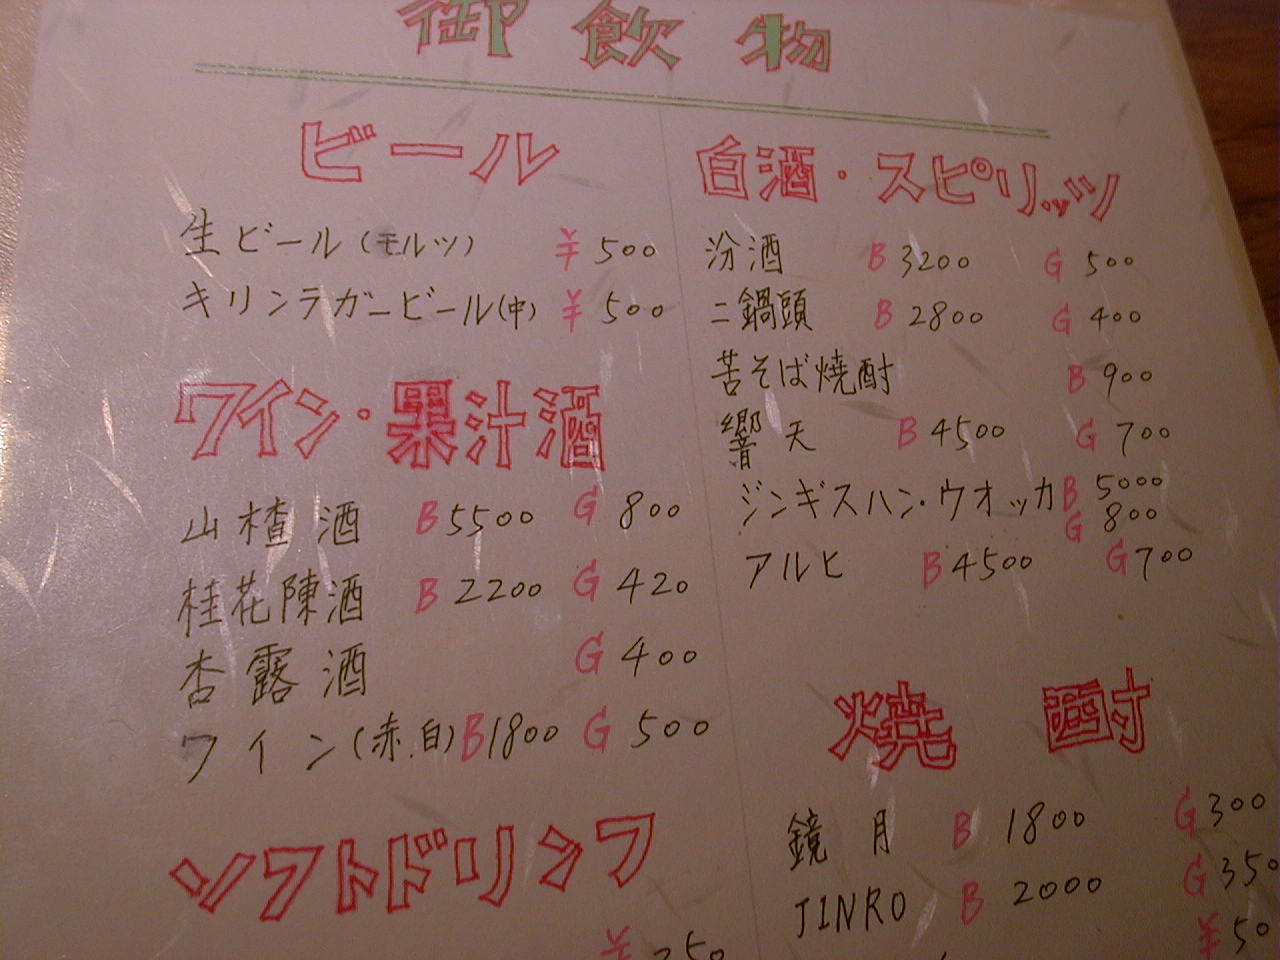 御飲物
ビール
生ビール(モルツ) ¥500
キリンラガービール(中) ¥500
ワイン・果汁酒
山楂酒 B5500 G800
桂花陳酒 B2200 G420
杏露酒 G400
ワイン(赤.白) B1800 G500
ソフトドリンク
¥250
白酒・スピリッツ
汾酒 B3200 G500
二鍋頭 B2800 G400
苦そば焼酎 B900
響天 B4500 G700
ジンギスハン・ウオッカ B5000
G800
アルヒ B4500 G700
焼酎
鏡月 B1800 G300
JINRO B2000 G350
¥50